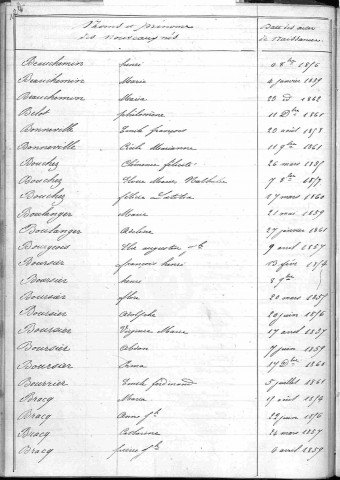 Noms et prénoms des nouveaux nés
Date des actes de Naissances
Beauchemin henri 1876
Beauchemin Marie 4 janvier 1859
Beauchemin Maria 23 id 1862
Belot philomène 11 Dbre 1861
Bonneville Emile françois 22 août 1873
Bonneville Marianne 11 9bre 1861
Bouchez Clémence félicité 26 mars 1857
Bouchez Marie Mathilde 7 8bre 1877
Bouchez 27 mars 1860
Boulanger Marie 21 mai 1859
Boulanger Adeline 27 janvier 1861
Bourgeois augustin 9 avril 1857
Boursier françois henri 13 fév 1874
Boursier henri 8 9bre
Boursier flore 20 mars 1857
Boursier Adolphe 20 juin 1876
Boursier Virginie Marie 17 avril 1857
Boursier 7 juin 1859
Boursier Irma 17 Dbre 1861
Bourrier Emile ferdinand 5 juillet 1861
Bracq Maria août 1874
Bracq Anne 22 juin 1876
Bracq Catherine 24 mars 1857
Bracq pierre 6 avril 1859